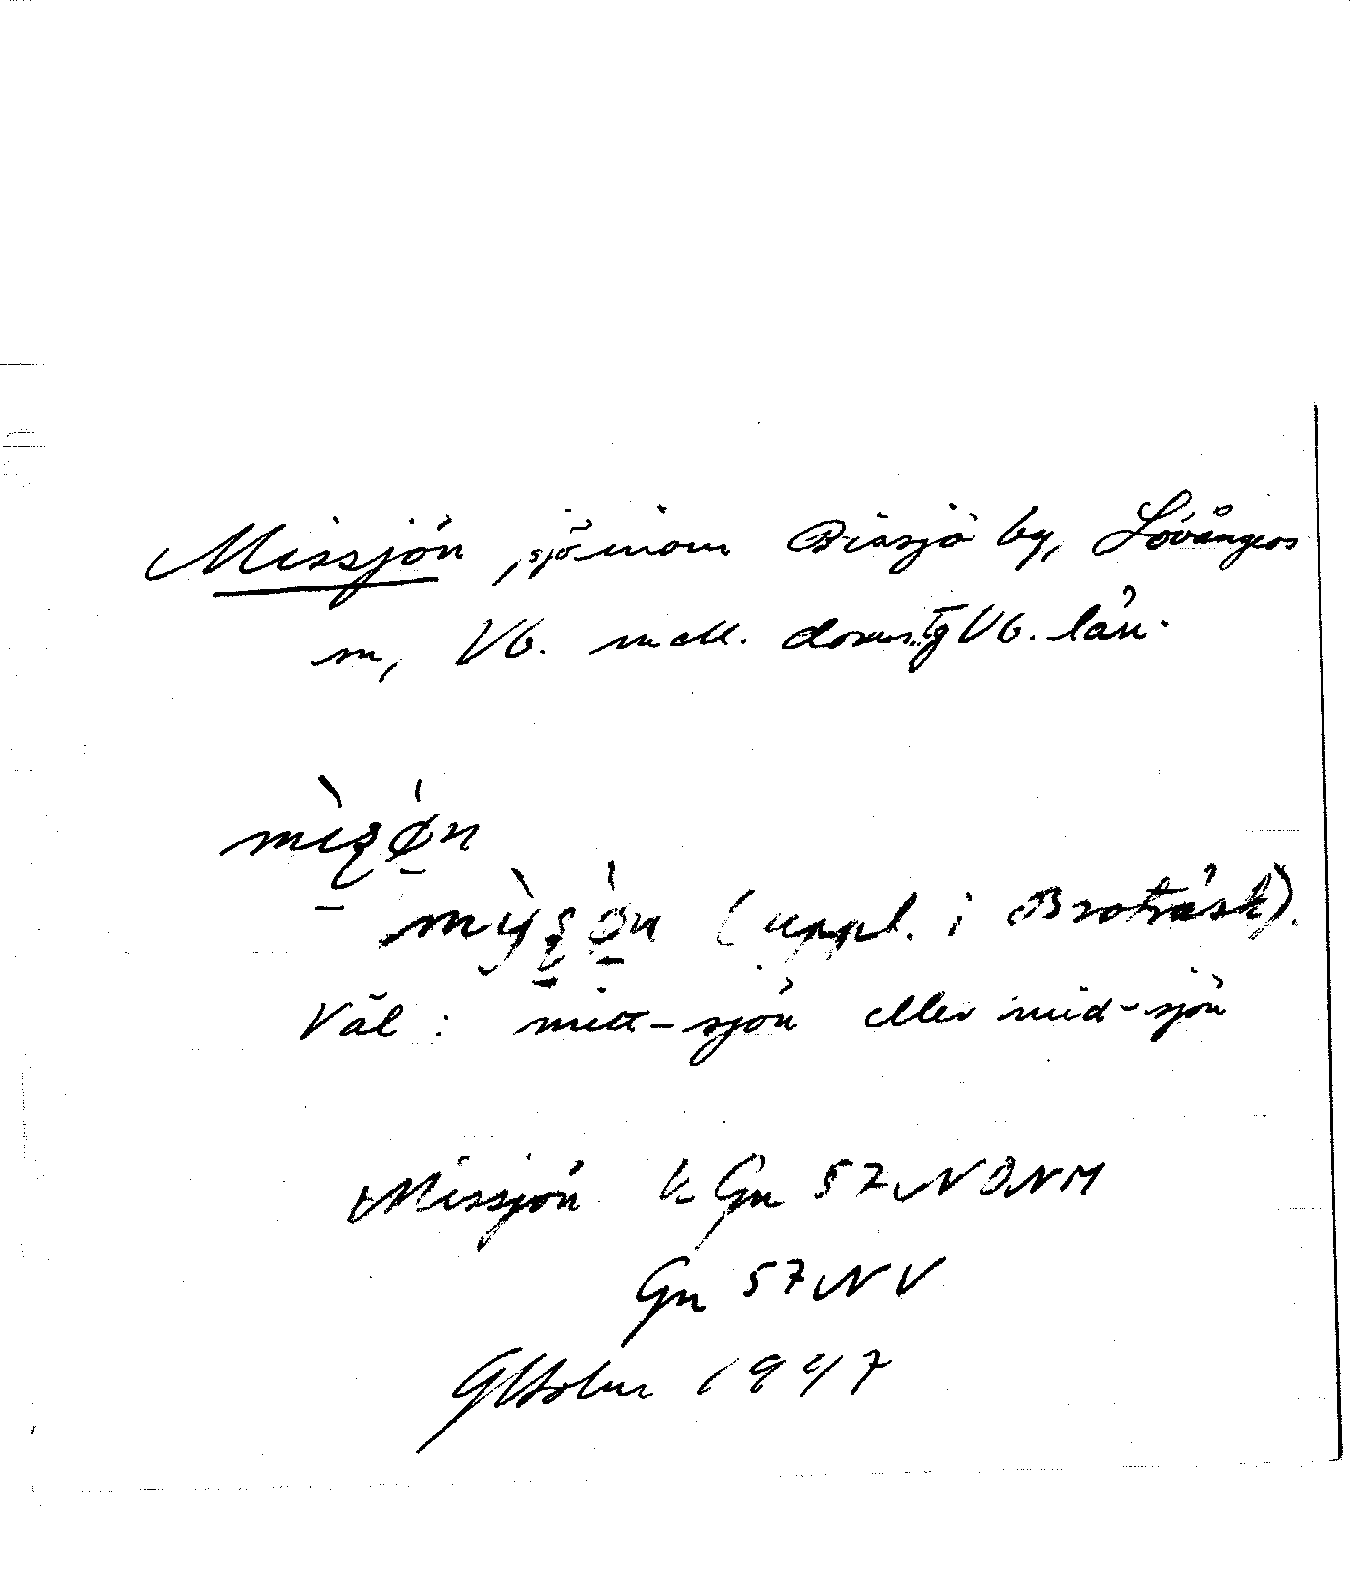 Missjön, sjö inom Bissjö by, Lövångers
sn, Vb. mell. doms.g Vb. län.
mìʂǿn
mỳʂǿn (uppl. i Broträsk).
Väl: mitt-sjön eller mid-sjön
Missjön k Gn 57 NONM
Gn 57 NV
GHolm 1947